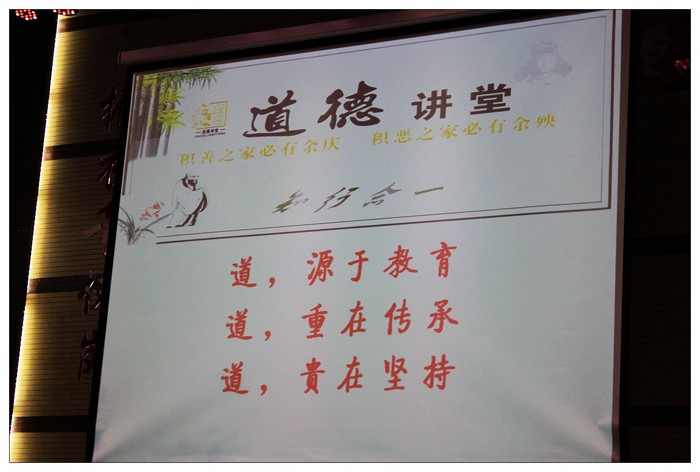 道德 讲堂
积善之家必有余庆 积恶之家必有余殃
知行合一
道，源于教育
道，重在传承
道，貴在坚持